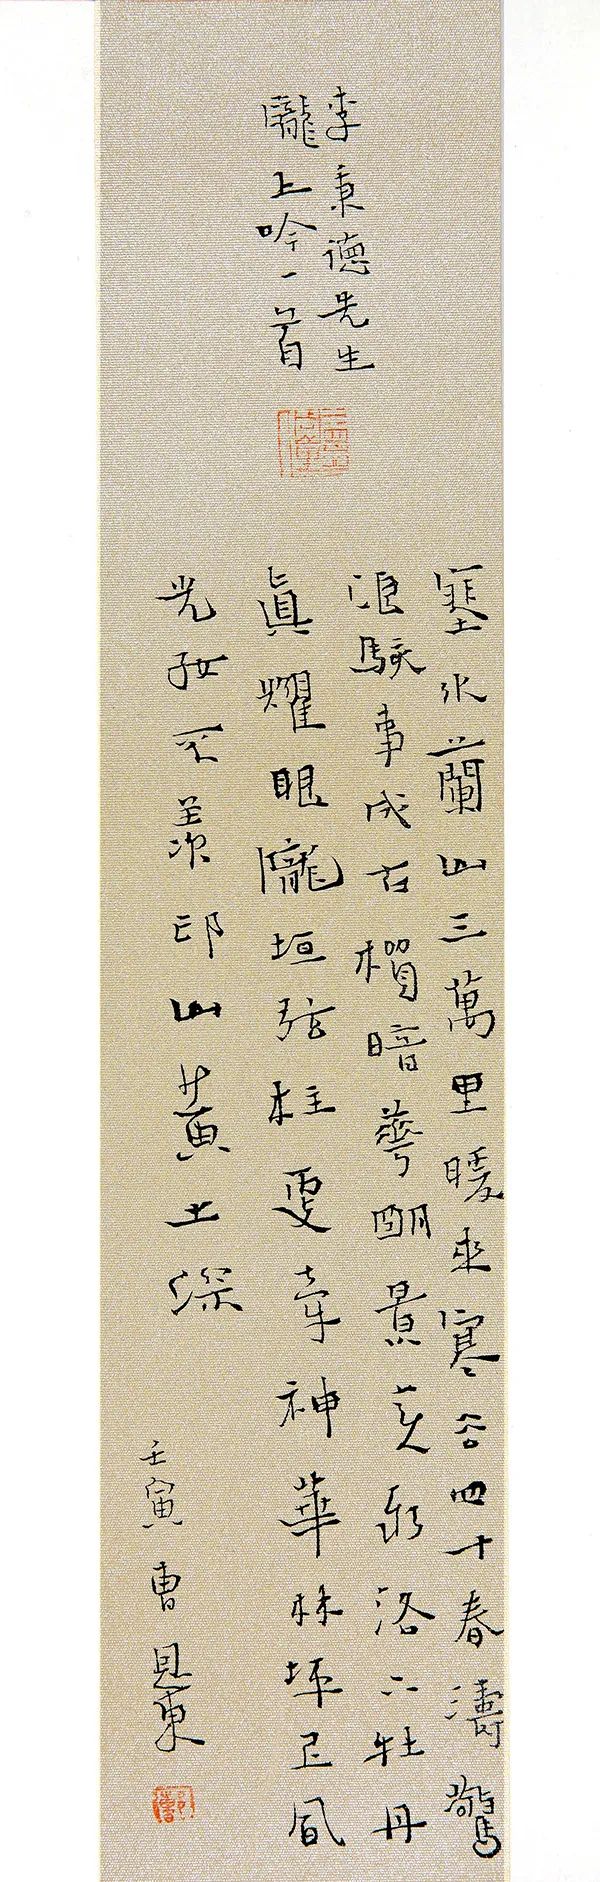 李秉德先生
隴上吟一首
塞水蘭山三萬里暖來寒去四十春濤驚
浪駭事成古柳暗華明景更新洛下牡丹
真耀眼隴垣弦柱更牽神華林坪上風
光好不羨邙山黃土深
壬寅曹恩東